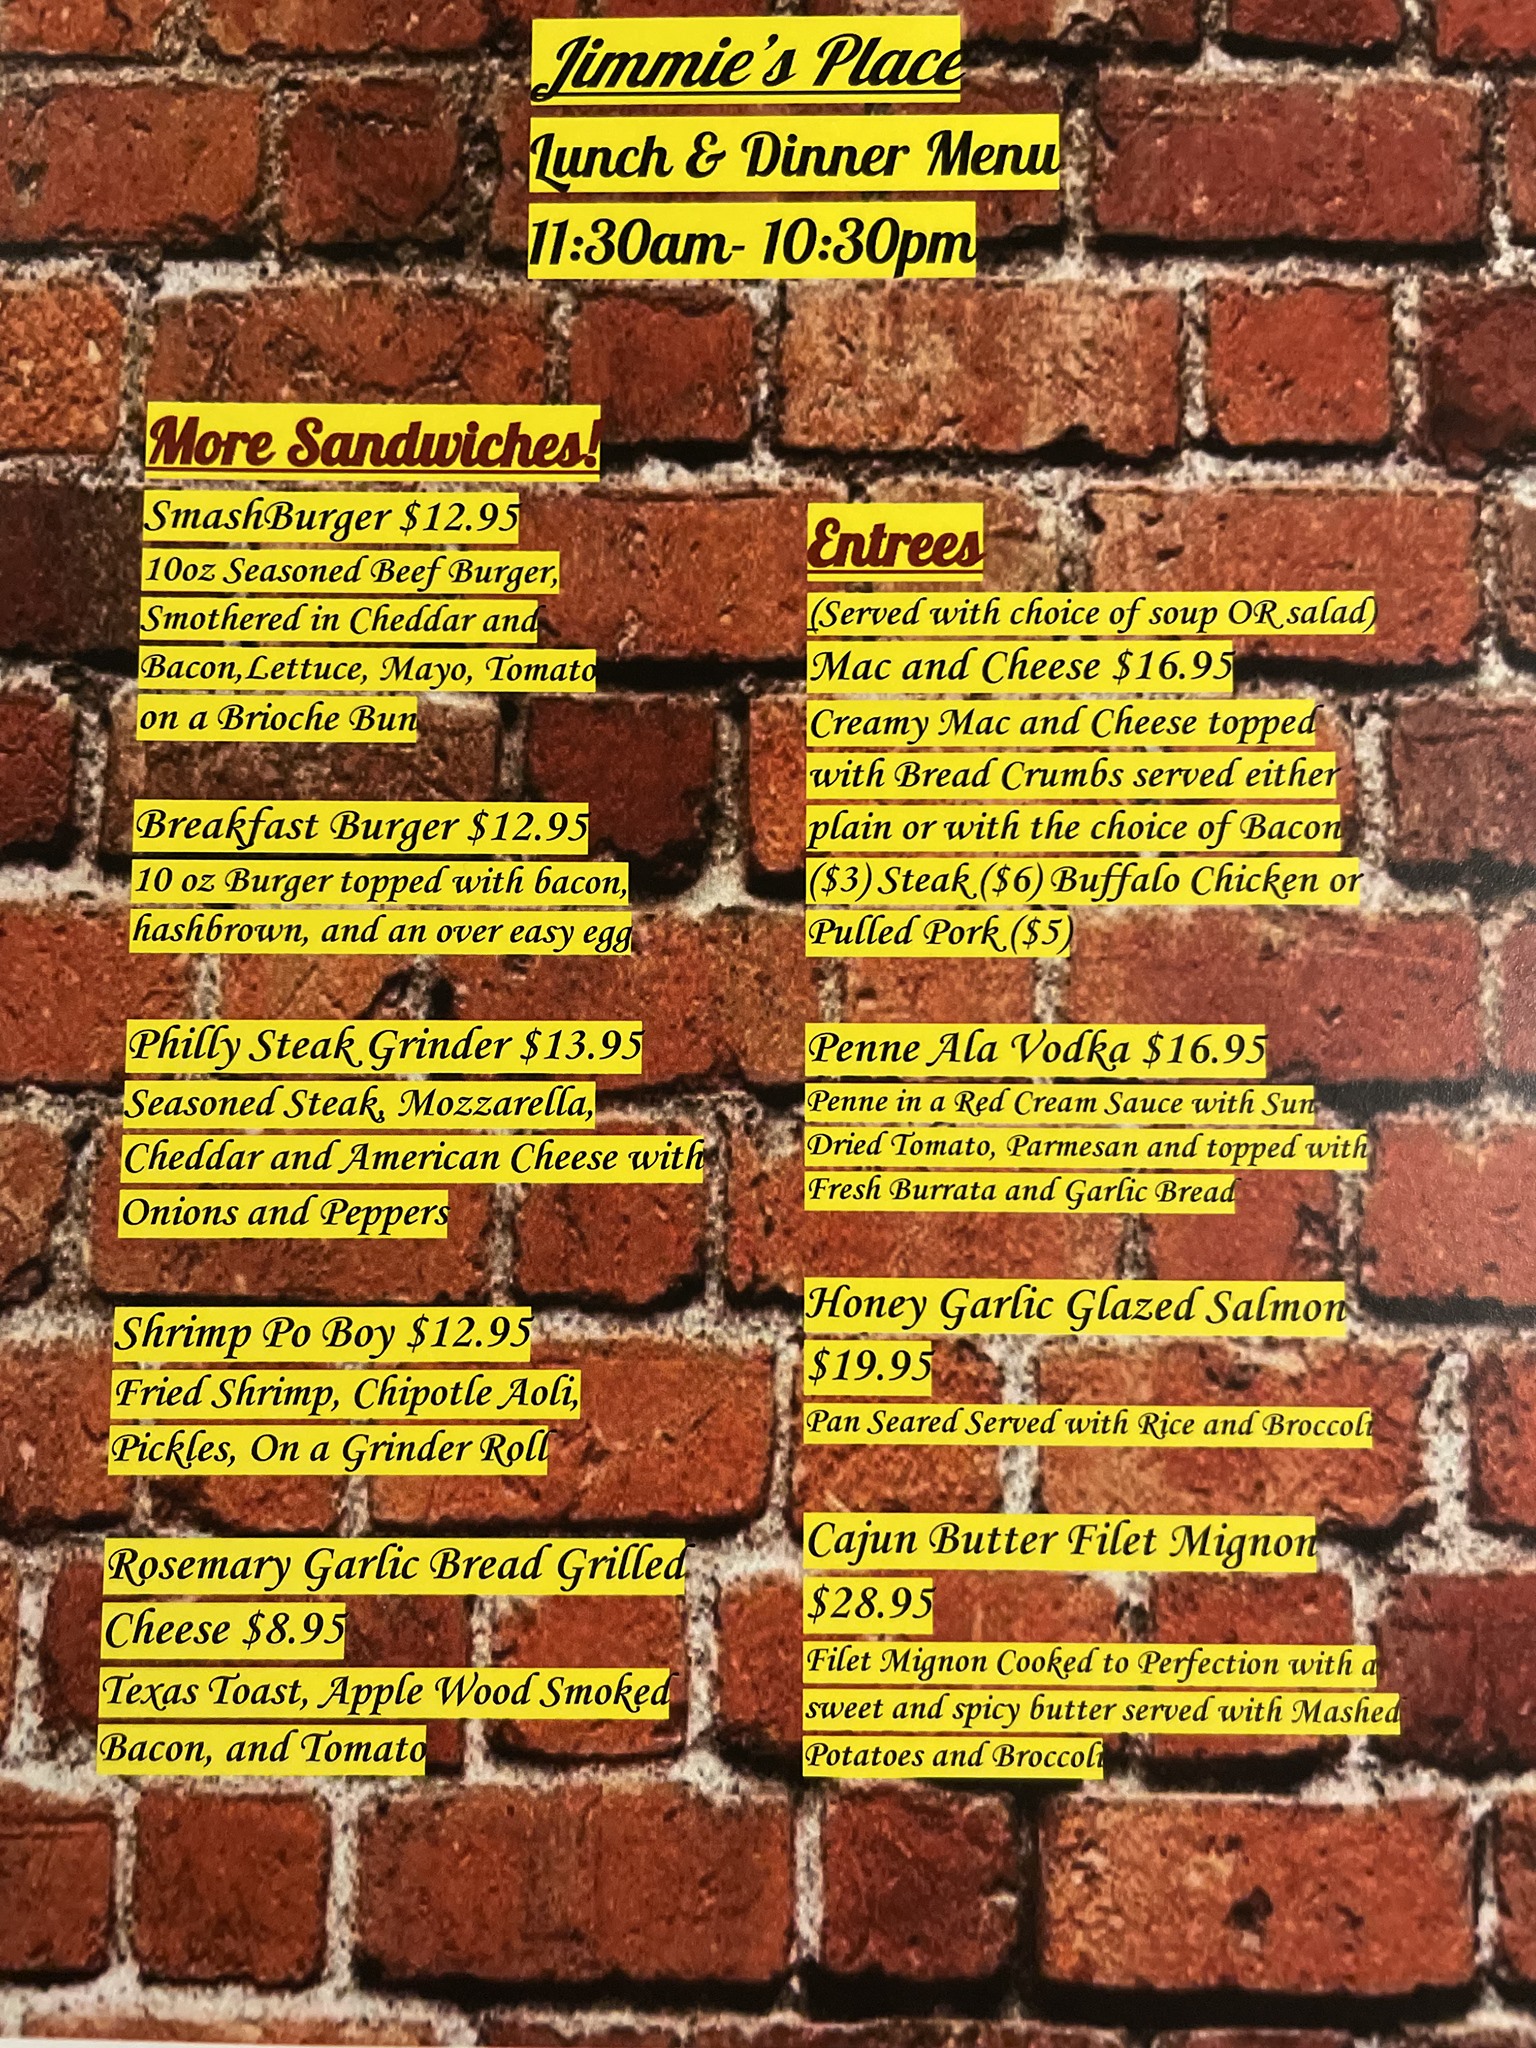 Jimmie's Place
Lunch & Dinner Menu
11:30am- 10:30pm
More Sandwiches!
SmashBurger $12.95
10oz Seasoned Beef Burger,
Smothered in Cheddar and
Bacon,Lettuce, Mayo, Tomato
on a Brioche Bun
Breakfast Burger $12.95
10 oz Burger topped with bacon,
hashbrown, and an over easy egg
Philly Steak Grinder $13.95
Seasoned Steak, Mozzarella,
Cheddar and American Cheese with
Onions and Peppers
Shrimp Po Boy $12.95
Fried Shrimp, Chipotle Aoli,
Pickles, On a Grinder Roll
Rosemary Garlic Bread Grilled
Cheese $8.95
Texas Toast, Apple Wood Smoked
Bacon, and Tomato
Entrees
(Served with choice of soup OR salad)
Mac and Cheese $16.95
Creamy Mac and Cheese topped
with Bread Crumbs served either
plain or with the choice of Bacon
($3) Steak ($6) Buffalo Chicken or
Pulled Pork ($5)
Penne Ala Vodka $16.95
Penne in a Red Cream Sauce with Sun
Dried Tomato, Parmesan and topped with
Fresh Burrata and Garlic Bread
Honey Garlic Glazed Salmon
$19.95
Pan Seared Served with Rice and Broccoli
Cajun Butter Filet Mignon
$28.95
Filet Mignon Cooked to Perfection with a
sweet and spicy butter served with Mashed
Potatoes and Broccoli